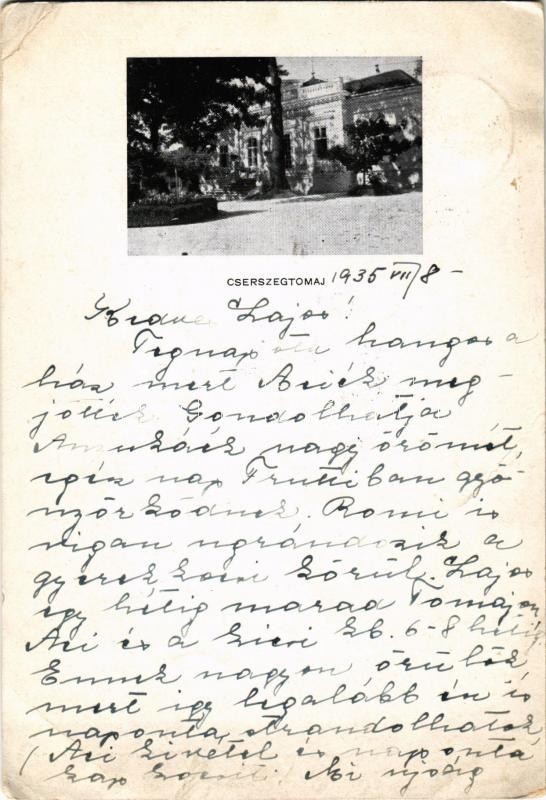 CSERSZEGTOMAJ 1935 VII/8 -
Kedves Lajos!
Tegnap óta hangos a
ház mert Aciék meg-
jöttek Gondolhatja
Anyukáék nagy örömét,
egész nap Fruttiban gyö-
nyörködnek. Romi is
vigan ugrándozik a
gyerek kocsi körül. Lajos
egy hétig marad Tomajon
Aci és a kicsi kb. 6-8 hétig
Ennek nagyon örülök
mert igy legalább én is
naponta strandolhatok
(Aci kivétel és naponta
kap kocsit. Mi ujság